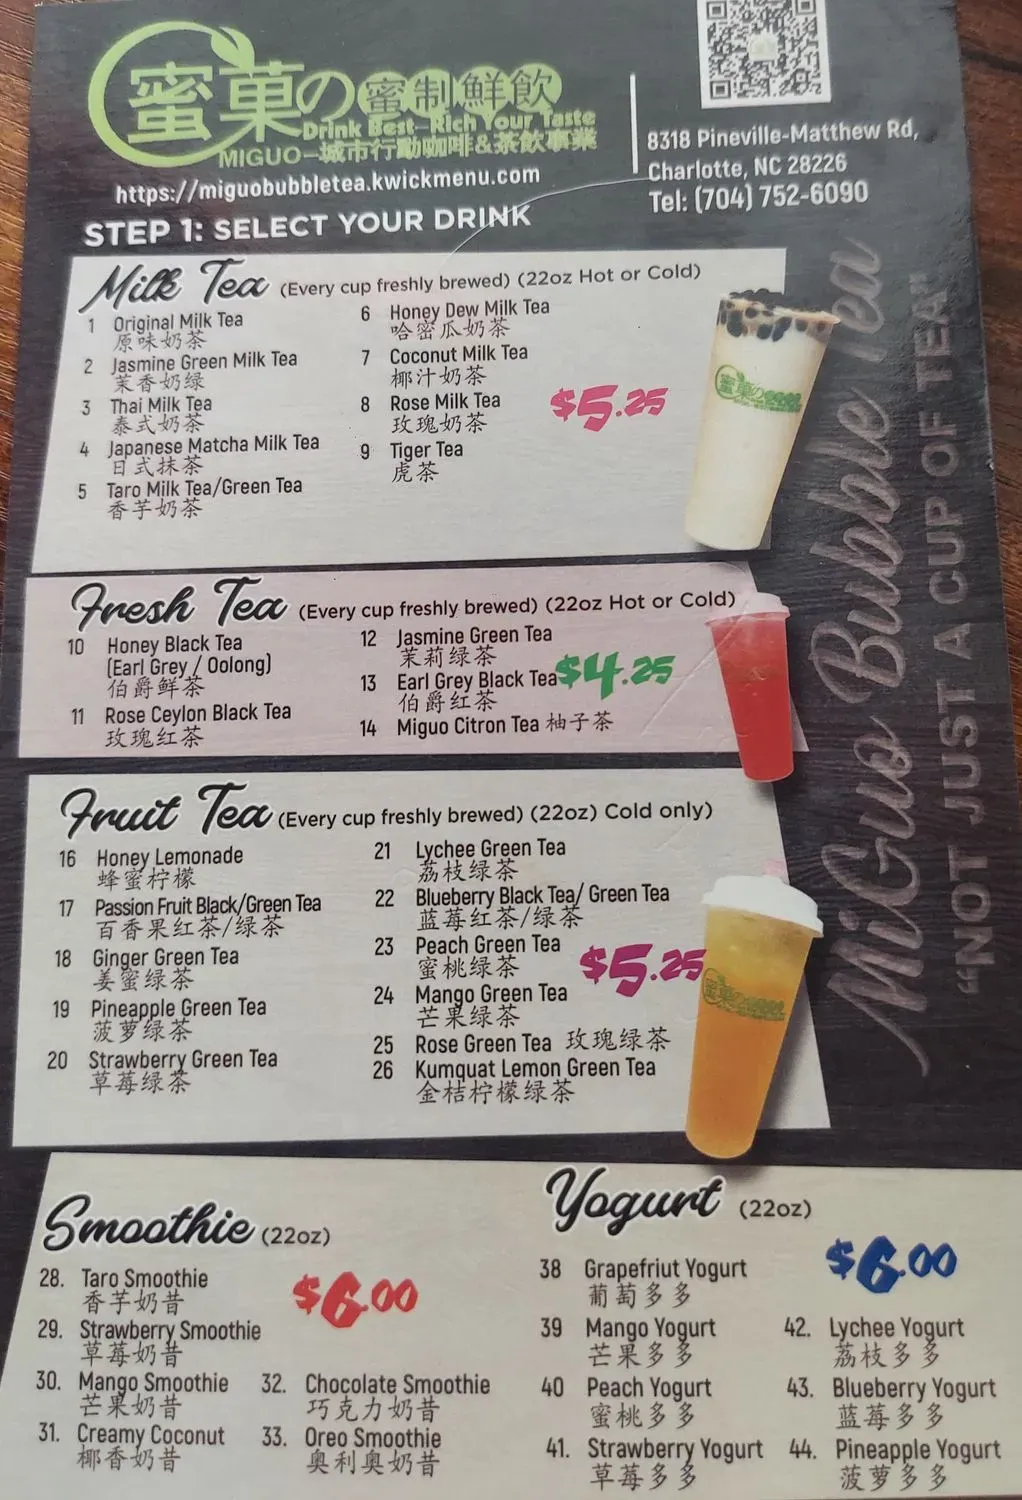 蜜菓の蜜制鮮飲
Drink Best-Rich Your Taste
MIGUO-城市行動咖啡&茶飲事業
https://miguobubbletea.kwickmenu.com
8318 Pineville-Matthew Rd,
Charlotte, NC 28226
Tel: (704) 752-6090
STEP 1: SELECT YOUR DRINK
Milk Tea (Every cup freshly brewed) (22oz Hot or Cold)
1 Original Milk Tea
原味奶茶
2 Jasmine Green Milk Tea
茉香奶绿
3 Thai Milk Tea
泰式奶茶
4 Japanese Matcha Milk Tea
日式抹茶
5 Taro Milk Tea/Green Tea
香芋奶茶
6 Honey Dew Milk Tea
哈密瓜奶茶
7 Coconut Milk Tea
椰汁奶茶
8 Rose Milk Tea
玫瑰奶茶
9 Tiger Tea
虎茶
$5.25
蜜菓の
Fresh Tea (Every cup freshly brewed) (22oz Hot or Cold)
10 Honey Black Tea
(Earl Grey / Oolong)
伯爵鲜茶
11 Rose Ceylon Black Tea
玫瑰红茶
12 Jasmine Green Tea
茉莉绿茶
13 Earl Grey Black Tea
伯爵红茶
14 Miguo Citron Tea 柚子茶
$4.25
Fruit Tea (Every cup freshly brewed) (22oz) Cold only)
16 Honey Lemonade
蜂蜜柠檬
17 Passion Fruit Black/Green Tea
百香果红茶/绿茶
18 Ginger Green Tea
姜蜜绿茶
19 Pineapple Green Tea
菠萝绿茶
20 Strawberry Green Tea
草莓绿茶
21 Lychee Green Tea
荔枝绿茶
22 Blueberry Black Tea/ Green Tea
蓝莓红茶/绿茶
23 Peach Green Tea
蜜桃绿茶
24 Mango Green Tea
芒果绿茶
25 Rose Green Tea 玫瑰绿茶
26 Kumquat Lemon Green Tea
金桔柠檬绿茶
$5.25
蜜菓の
MiGuo Bubble Tea
“NOT JUST A CUP OF TEA”
Smoothie (22oz)
28. Taro Smoothie
香芋奶昔
29. Strawberry Smoothie
草莓奶昔
30. Mango Smoothie
芒果奶昔
31. Creamy Coconut
椰香奶昔
32. Chocolate Smoothie
巧克力奶昔
33. Oreo Smoothie
奥利奥奶昔
$6.00
Yogurt (22oz)
38 Grapefriut Yogurt
葡萄多多
39 Mango Yogurt
芒果多多
40 Peach Yogurt
蜜桃多多
41. Strawberry Yogurt
草莓多多
42. Lychee Yogurt
荔枝多多
43. Blueberry Yogurt
蓝莓多多
44. Pineapple Yogurt
菠萝多多
$6.00